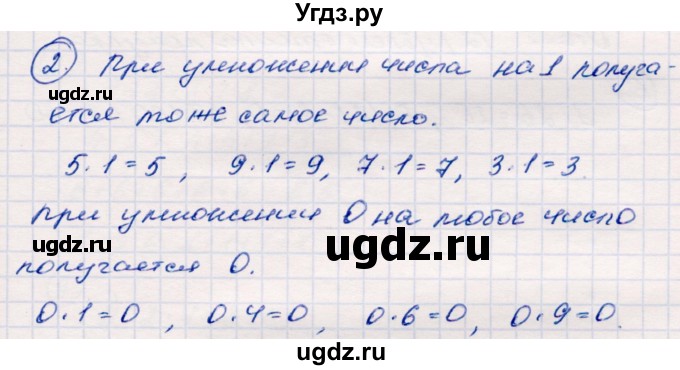 Угдз.ру
2. При умножении числа на 1 получа-
ugdz.ru
ется тоже самое число.
5·1=5, 9·1=9, 7·1=7, 3·1=3.
при умножении 0 на любое число
ugdz.ru ugdz.ru ugdz.ru
получается 0.
0·1=0, 0·4=0, 0·6=0, 0·9=0.
ugdz.ru